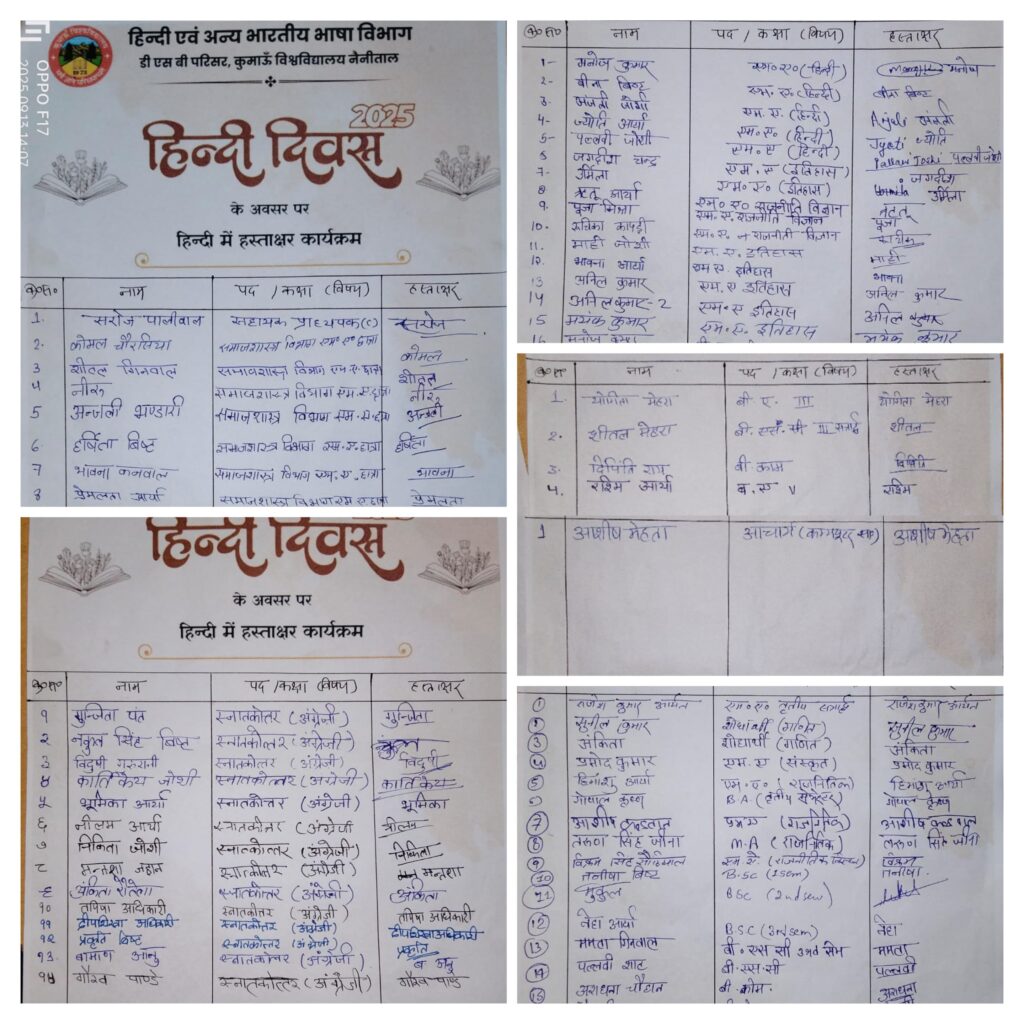 OPPO F17
2025.09.13 14:07
हिन्दी एवं अन्य भारतीय भाषा विभाग
डी एस बी परिसर, कुमाऊँ विश्वविद्यालय नैनीताल
2025
हिन्दी दिवस
के अवसर पर
हिन्दी में हस्ताक्षर कार्यक्रम
क्र०सं० नाम पद /कक्षा (विषय) हस्ताक्षर
1. सरोज पालीवाल सहायक प्राध्यपक(c) सरोज
2. कोमल चौरसिया समाजशास्त्र विभाग एम० ए० छात्रा कोमल
3 शीतल गिनवाल समाजशास्त्र विभाग एम. ए. छात्रा शीतल
4 नीरू समाजशास्त्र विभाग एम. ए. छात्रा नीरू
5 अन्जली भण्डारी समाजशास्त्र विभाग एम. ए. छात्रा अन्जली
6 हर्षिता बिष्ट समाजशास्त्र विभाग एम. ए. छात्रा हर्षिता
7 भावना कनवाल समाजशास्त्र विभाग एम. ए. छात्रा भावना
8 प्रेमलता आर्या समाजशास्त्र विभाग एम ए छात्रा प्रेमलता
क्र०सं० नाम पद / कक्षा (विषय) हस्ताक्षर
1- मनोज कुमार एम० ए० (हिन्दी) मनोज
2- बीना बिष्ट एम. ए. (हिन्दी) बीना बिष्ट
3. अंजली जोशी एम. ए. (हिन्दी) Anjali अंजली
4- ज्योति आर्या एम० ए. (हिन्दी) Jyoti ज्योति
5- पल्लवी जोशी एम० ए (हिन्दी) Pallavi Joshi पल्लवी जोशी
6 जगदीश चन्द्र एम. ए (इतिहास) जगदीश
7- उर्मिला एम० ए० (इतिहास) उर्मिला
8 ऋतू आर्या एम० ए० राजनीति विज्ञान ऋतू
9. पूजा एम. ए. राजनीति विज्ञान पूजा
10. एम० ए० राजनीती विज्ञान
11. माही जोशी एम. ए. इतिहास माही
12. भावना आर्या एम ए. इतिहास भावना
13 अनिल कुमार एम. ए. इतिहास अनिल कुमार
14 अनिल कुमार-2 एम० ए. इतिहास अनिल कुमार
15 मयंक कुमार एम० ए. इतिहास मयंक कुमार
16 मनोज
क्र०सं० नाम पद / कक्षा (विषय) हस्ताक्षर
1. योगिता मेहरा बी. ए. III योगिता मेहरा
2. शीतल मेहरा बी. एस. सी III शीतल
3. बी. काम
4. रश्मि आर्या ब. ए V रश्मि
1 आशीष मेहता आचार्य आशीष मेहता
हिन्दी दिवस
के अवसर पर
हिन्दी में हस्ताक्षर कार्यक्रम
क्र०सं० नाम पद /कक्षा (विषय) हस्ताक्षर
१ गुन्जिता पंत स्नातकोत्तर (अंग्रेजी) गुन्जिता
२ नकुल सिंह बिष्ट स्नातकोत्तर (अंग्रेजी) नकुल
३ विदुषी गुरुरानी स्नातकोत्तर (अंग्रेजी) विदुषी
४ कार्तिकेय जोशी स्नातकोत्तर (अंग्रेजी) कार्तिकेय
५ भूमिका आर्या स्नातकोत्तर (अंग्रेजी) भूमिका
६ नीलम आर्या स्नातकोत्तर (अंग्रेजी नीलम
७ निकिता जोशी स्नातकोत्तर (अंग्रेजी) निकिता
८ मन्तशा स्नातकोत्तर (अंग्रेजी) मन्तशा
९ अंकिता स्नातकोत्तर (अंग्रेजी) अंकिता
१० अधिकारी स्नातकोत्तर (अंग्रेजी) अधिकारी
११ दीपशिखा अधिकारी स्नातकोत्तर (अंग्रेजी) दीपशिखा अधिकारी
१२ प्रकृति बिष्ट स्नातकोत्तर (अंग्रेजी) प्रकृति
१३. स्नातकोत्तर (अंग्रेजी)
१४ गौरव पाण्डे स्नातकोत्तर (अंग्रेजी) गौरव पाण्डे
1 एम० ए० तृतीय
2 सुनील कुमार शोधार्थी (गणित) सुनील कुमार
3 अंकिता शोधार्थी (गणित) अंकिता
4 प्रमोद कुमार एम. ए (संस्कृत) प्रमोद कुमार
5 हिमांशु आर्या एम. ए. हिमांशु आर्या
6 गोपाल कृष्ण B.A (तृतीय सेमेस्टर) गोपाल कृष्ण
7 आशीष आशीष
8 तरुण सिंह जीना M.A तरुण सिंह जीना
9 विक्रम सिंह विक्रम
10 तनीषा बिष्ट B.sc तनीषा
11 मुकुल BSC (2nd sem)
12 नेहा आर्या B.S.C (3rd sem) नेहा
13 ममता बी० एस सी ममता
14 पल्लवी बी. एस. सी पल्लवी
15 अराधना चौहान बी. कोम. अराधना